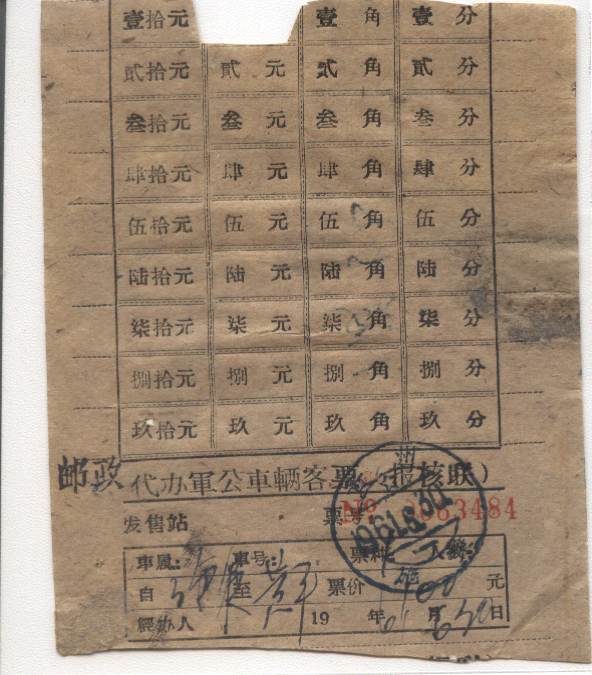 壹拾元 壹角 壹分
貳拾元 貳元 貳角 貳分
叁拾元 叁元 叁角 叁分
肆拾元 肆元 肆角 肆分
伍拾元 伍元 伍角 伍分
陆拾元 陆元 陆角 陆分
柒拾元 柒元 柒角 柒分
捌拾元 捌元 捌角 捌分
玖拾元 玖元 玖角 玖分
邮政 代办軍公車輛客票(报核联)
发售站 票号 № 0063484
1961.6.30
車属: 車号: 票种
自 至 票价 元
經办人 19 61 年 6 月 30 日